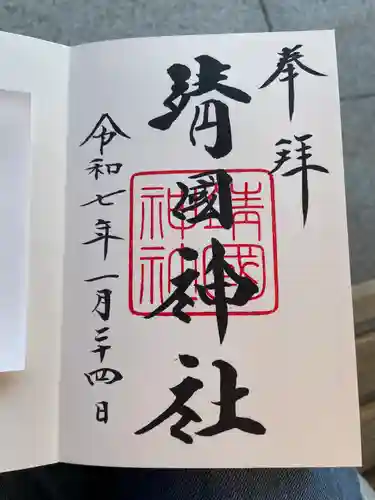 奉拝
靖國神社
令和七年一月二十四日
靖國
神社